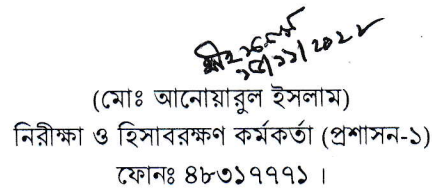 ১৫/১১/২০২২
(মোঃ আনোয়ারুল ইসলাম)
নিরীক্ষা ও হিসাবরক্ষণ কর্মকর্তা (প্রশাসন-১)
ফোনঃ ৪৮৩১৭৭৭১ ।